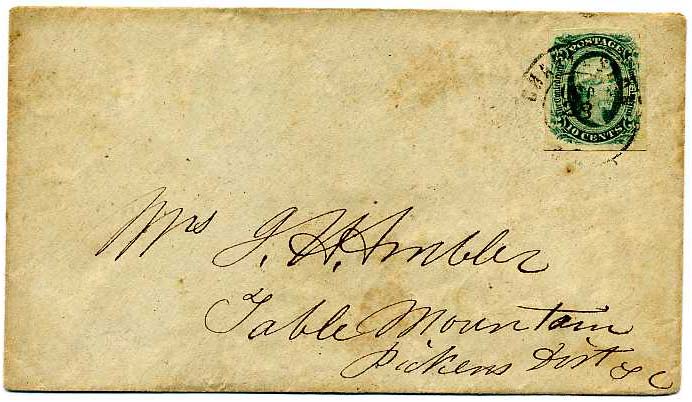 POSTAGE
10 CENTS
Mrs J. H. Ambler
Table Mountain
Pickens Dist S C